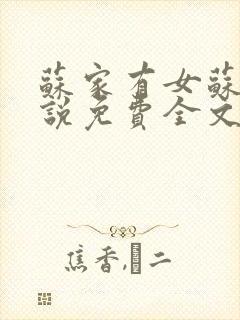 蘇家有女蘇
說免費全文
焦香,�二